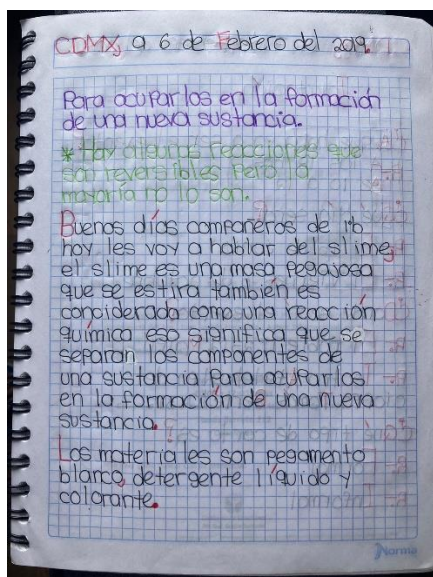 CDMX, a 6 de Febrero del 2019.
Para ocupar los en la formación
de una nueva sustancia.
* Hay algunas reacciones que
son reversibles Pero la
mayoría no lo son.
Buenos días compañeros de 1°b
hoy les voy a hablar del slime,
el slime es una masa pegajosa
que se estira también es
considerada como una reacción
química eso significa que se
separan los componentes de
una sustancia Para ocuparlos
en la formación de una nueva
sustancia.
Los materiales son pegamento
blanco, detergente líquido y
colorante.
Norma